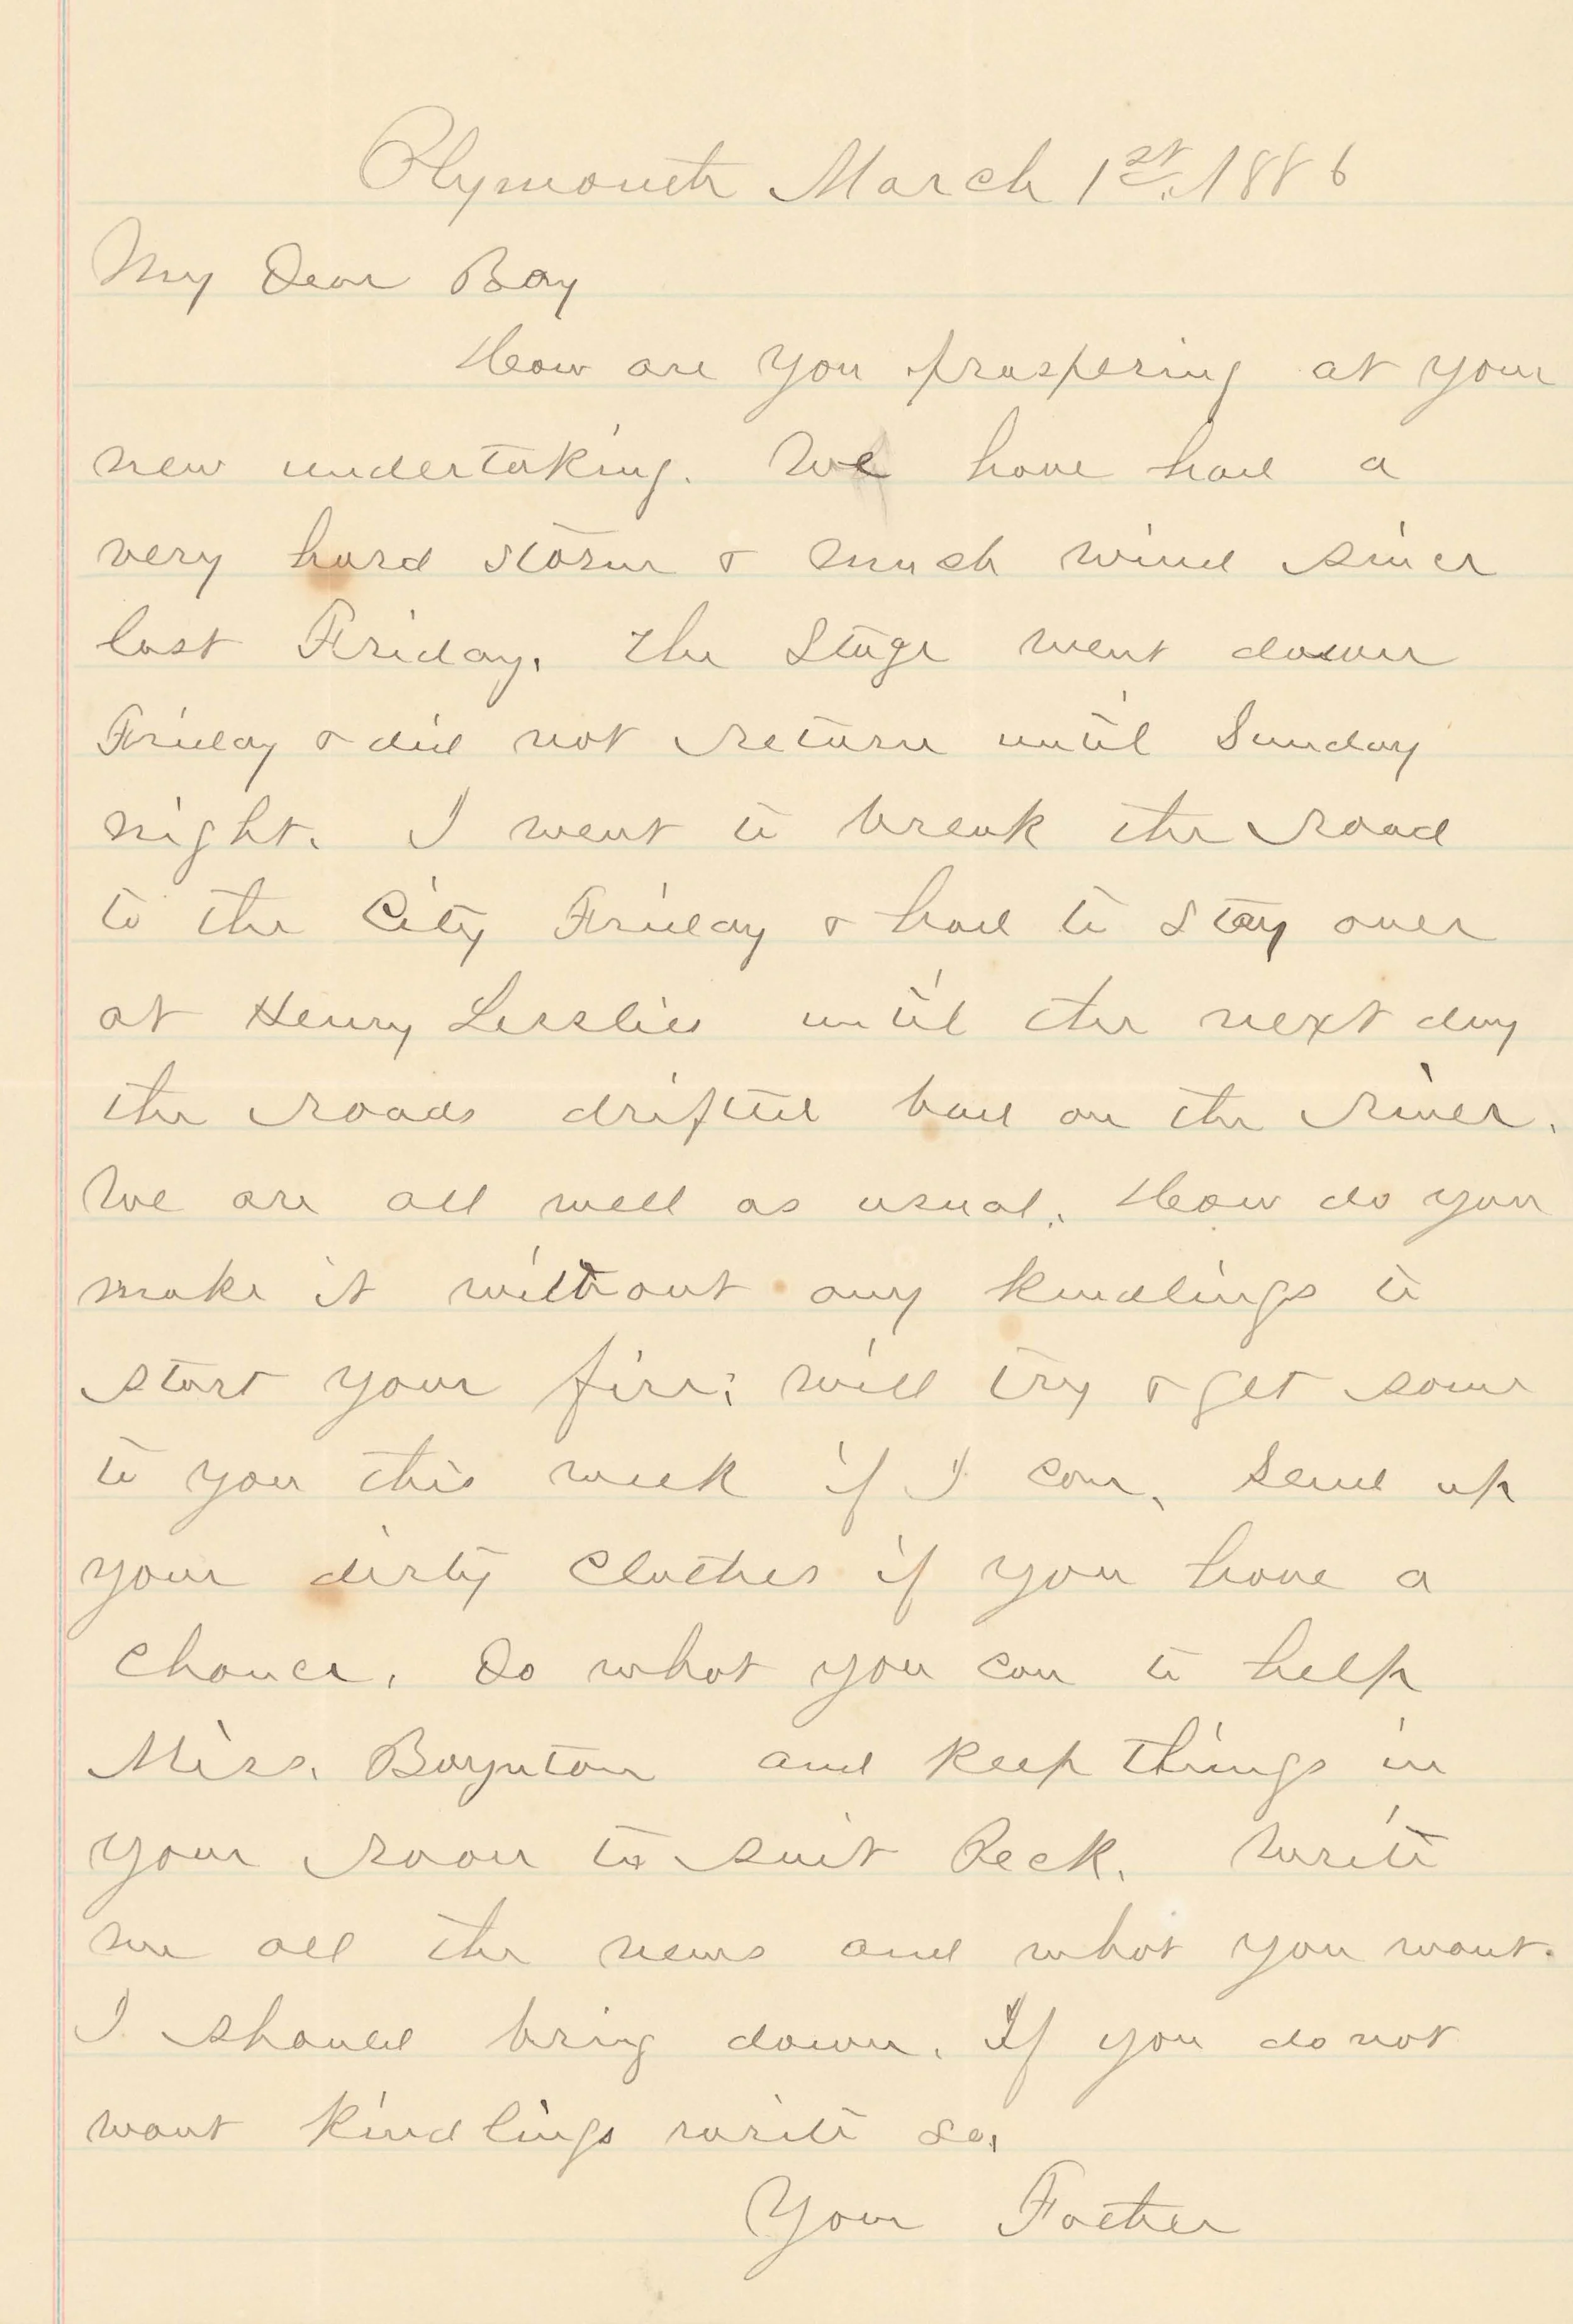 Plymouth March 1st. 1886
My Dear Boy
How are you prospering at your
new undertaking. We have had a
very hard storm & much wind since
last Friday. The Stage went down
Friday & did not return until Sunday
night. I went to break the road
to the City Friday & had to stay over
at Henry Lesslies until the next day
the roads drifted bad on the river.
We are all well as usual. How do you
make it without any kindlings to
start your fire; will try & get some
to you this week if I can. Send up
your dirty clothes if you have a
chance. Do what you can to help
Miss. Boynton and keep things in
your room to suit Peck. Write
me all the news and what you want.
I should bring down. If you do not
want kindlings write so.
Your Father